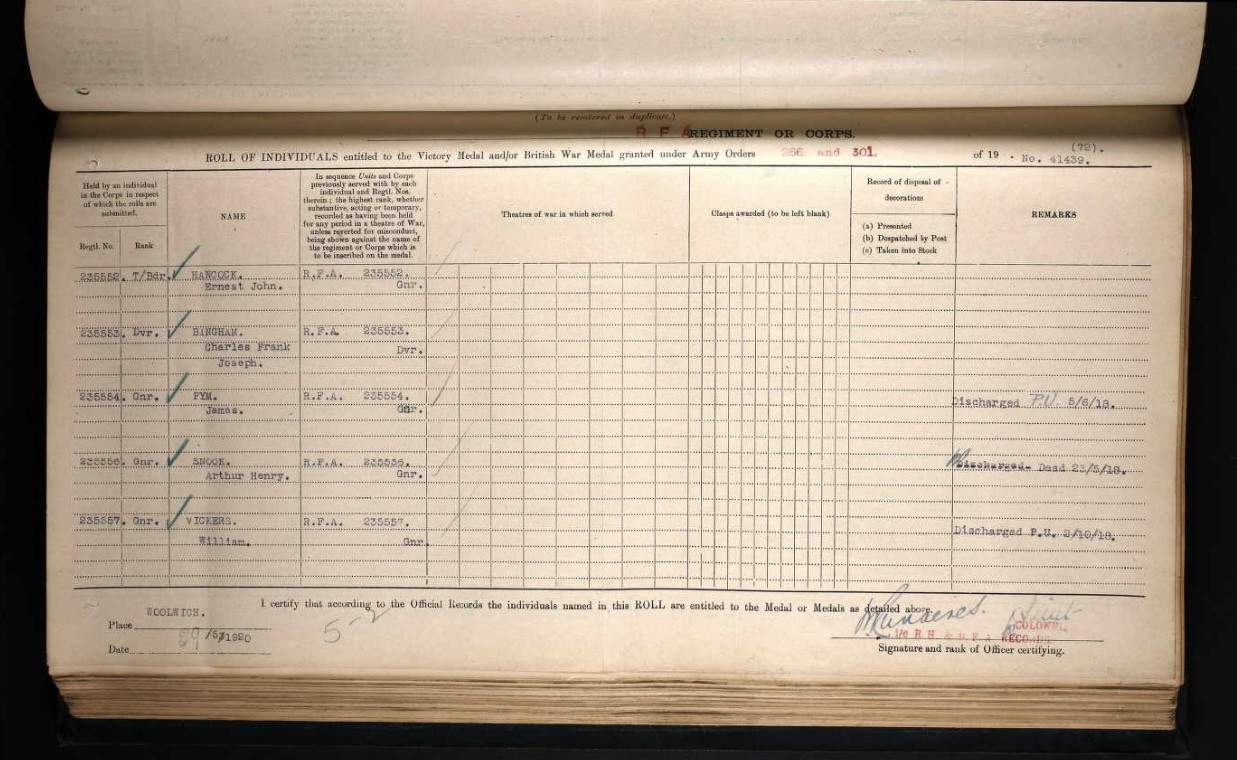 (To be rendered in duplicate.)
R F A REGIMENT OR CORPS.
ROLL OF INDIVIDUALS entitled to the Victory Medal and/or British War Medal granted under Army Orders 266. and 301. of 19 . No. 41439.
(72).
Held by an individual
in the Corps in respect
of which the rolls are
submitted.
Regtl. No.
Rank
NAME
In sequence Units and Corps
previously served with by each
individual and Regtl. Nos.
therein; the highest rank, whether
substantive, acting or temporary,
recorded as having been held
for any period in a theatre of War,
unless reverted for misconduct,
being shown against the name of
the regiment or Corps which is
to be inscribed on the medal.
Theatres of war in which served
Clasps awarded (to be left blank)
Record of disposal of
decorations
(a) Presented
(b) Despatched by Post
(c) Taken into Stock
REMARKS
235552. T/Bdr. HANCOCK. R.F.A. 235552.
Ernest John. Gnr.
235553. Dvr. BINGHAM. R.F.A. 235553.
Charles Frank Dvr.
Joseph.
235554. Gnr. PYM. R.F.A. 235554.
James. Gnr. Discharged P.U. 5/6/18.
235556. Gnr. SNOOK. R.F.A. 235556.
Arthur Henry. Gnr. Discharged- Dead 23/5/18.
235557. Gnr. VICKERS. R.F.A. 235557.
William. Gnr. Discharged P.U. 2/10/18.
I certify that according to the Official Records the individuals named in this ROLL are entitled to the Medal or Medals as detailed above.
WOOLWICH.
Place
5-2
Date 1920
COLONEL.
i/c R H & R F A RECORDS.
Signature and rank of Officer certifying.